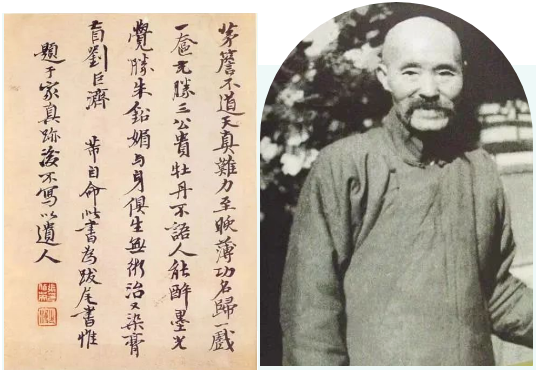 茅簷不道天真難力至晚薄功名歸一戲
一奩尤勝三公貴牡丹不語人能醉墨光
覺勝朱鉛媚与身俱生無術治又染膏
肓劉巨濟 芾自命此書為跋尾書惟
題于家真跡後不寫以遺人